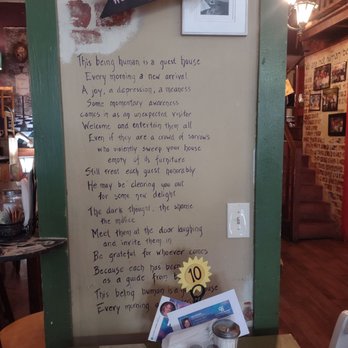 This being human is a guest house
Every morning a new arrival
A joy, a depression, a meaness
Some momentary awareness
comes as an unexpected visitor
Welcome and entertain them all
Even if they are a crowd of sorrows
who violently sweep your house
empty of its furniture
Still treat each guest honorably
He may be clearing you out
for some new delight
The dark thought, the shame
the malice
Meet them at the door laughing
and invite them in
Be grateful for whoever comes
Because each has been
as a guide from
This being human is a house
Every morning
10